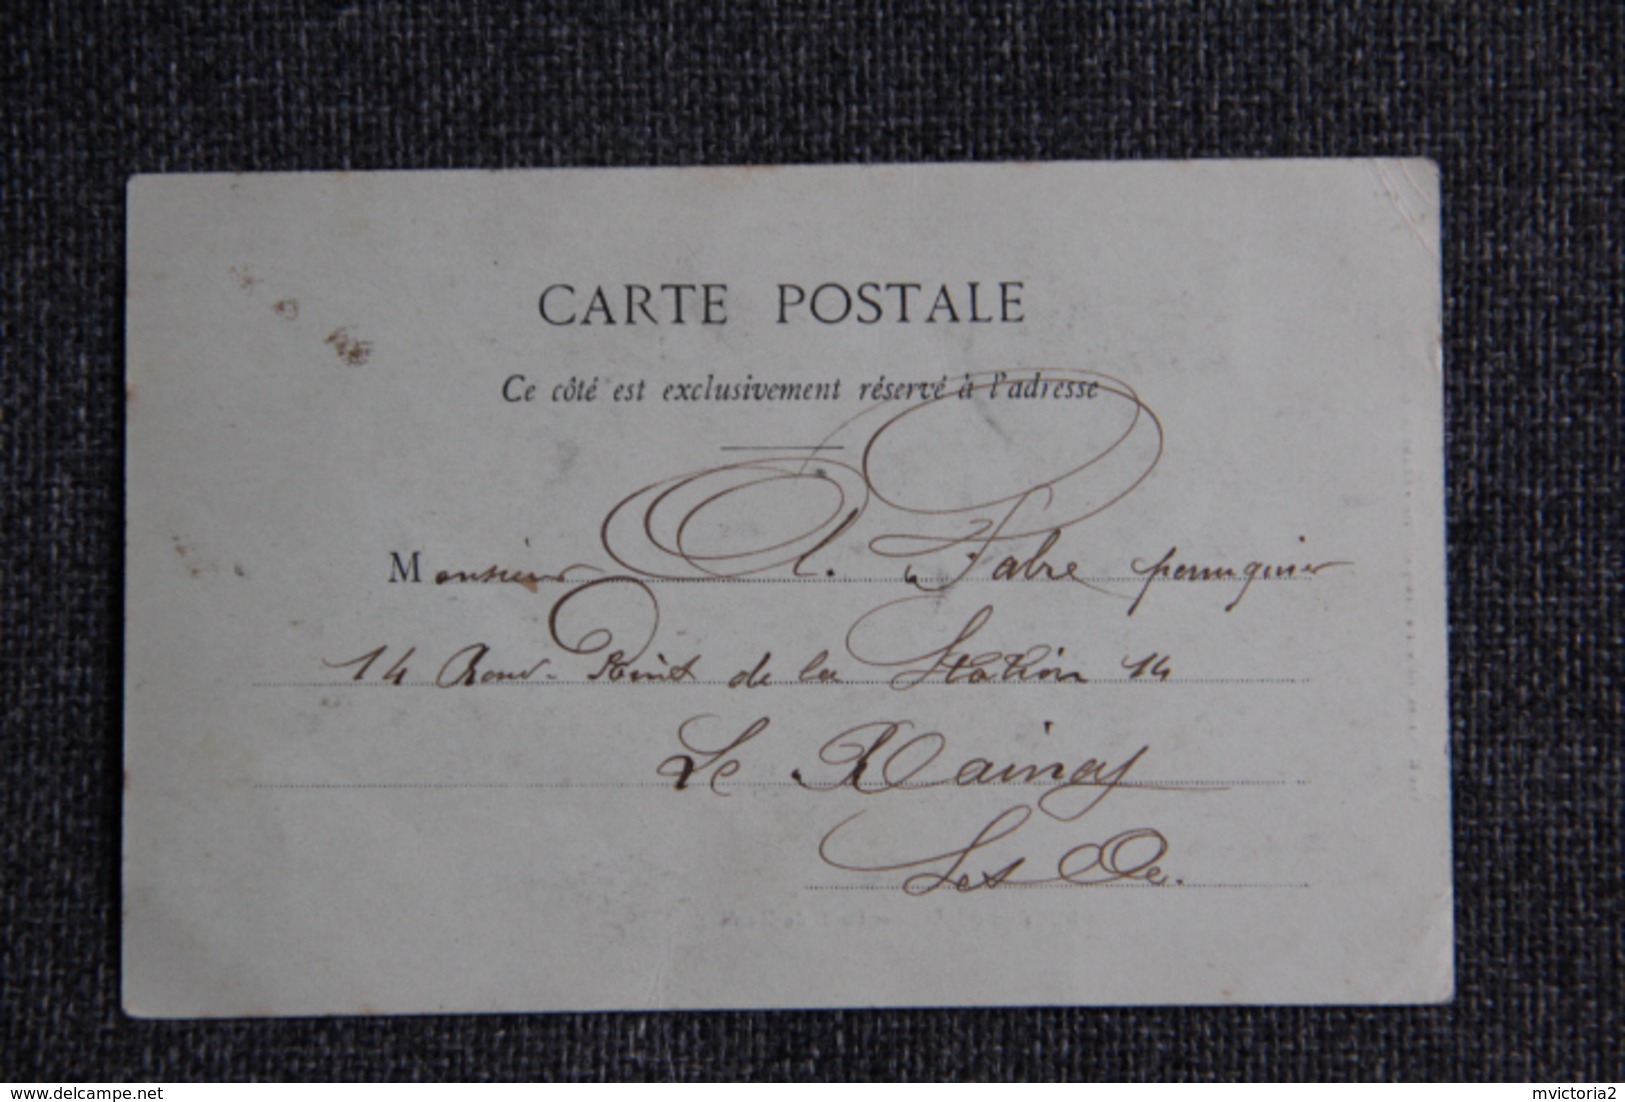 CARTE POSTALE
Ce côté est exclusivement réservé à l'adresse
Monsieur A. Fabre perruquier
14 Rond-Point de la Station 14
Le Raincy
S et Oe.
www.delcampe.net
mvictoria2